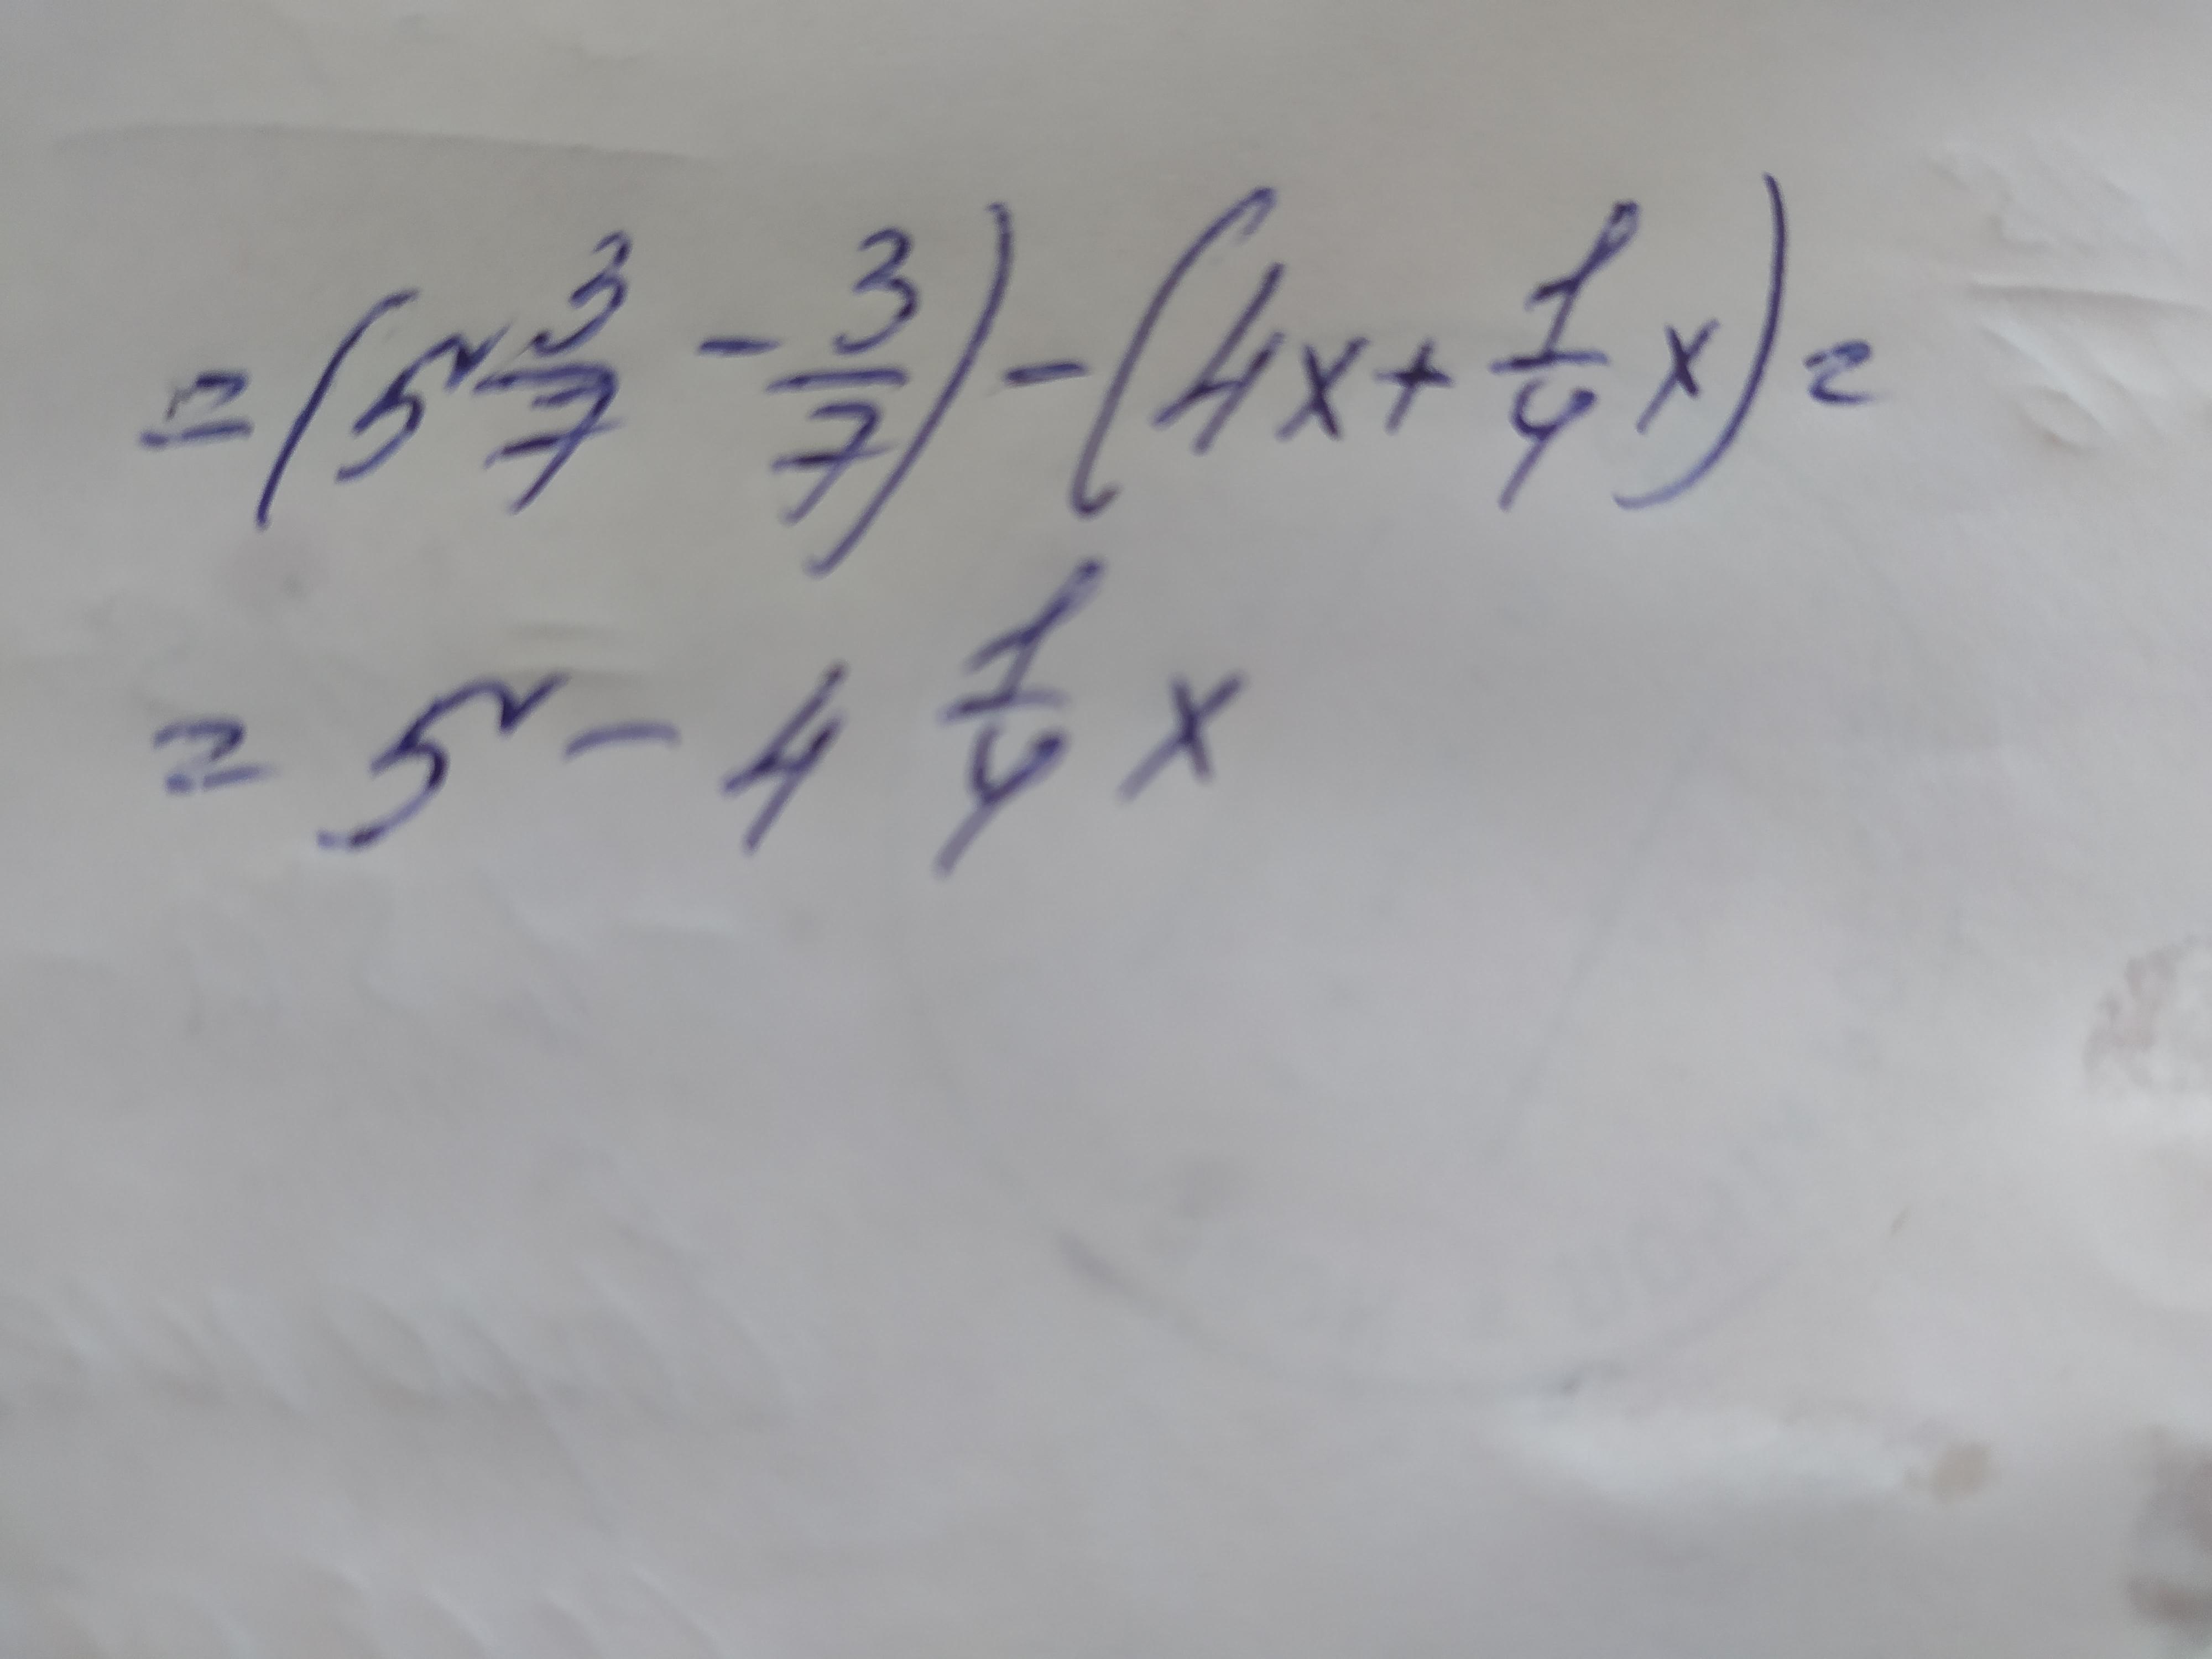 = (5 3/7 - 3/7) - (4x + 1/4 x) =
= 5 - 4 1/4 x